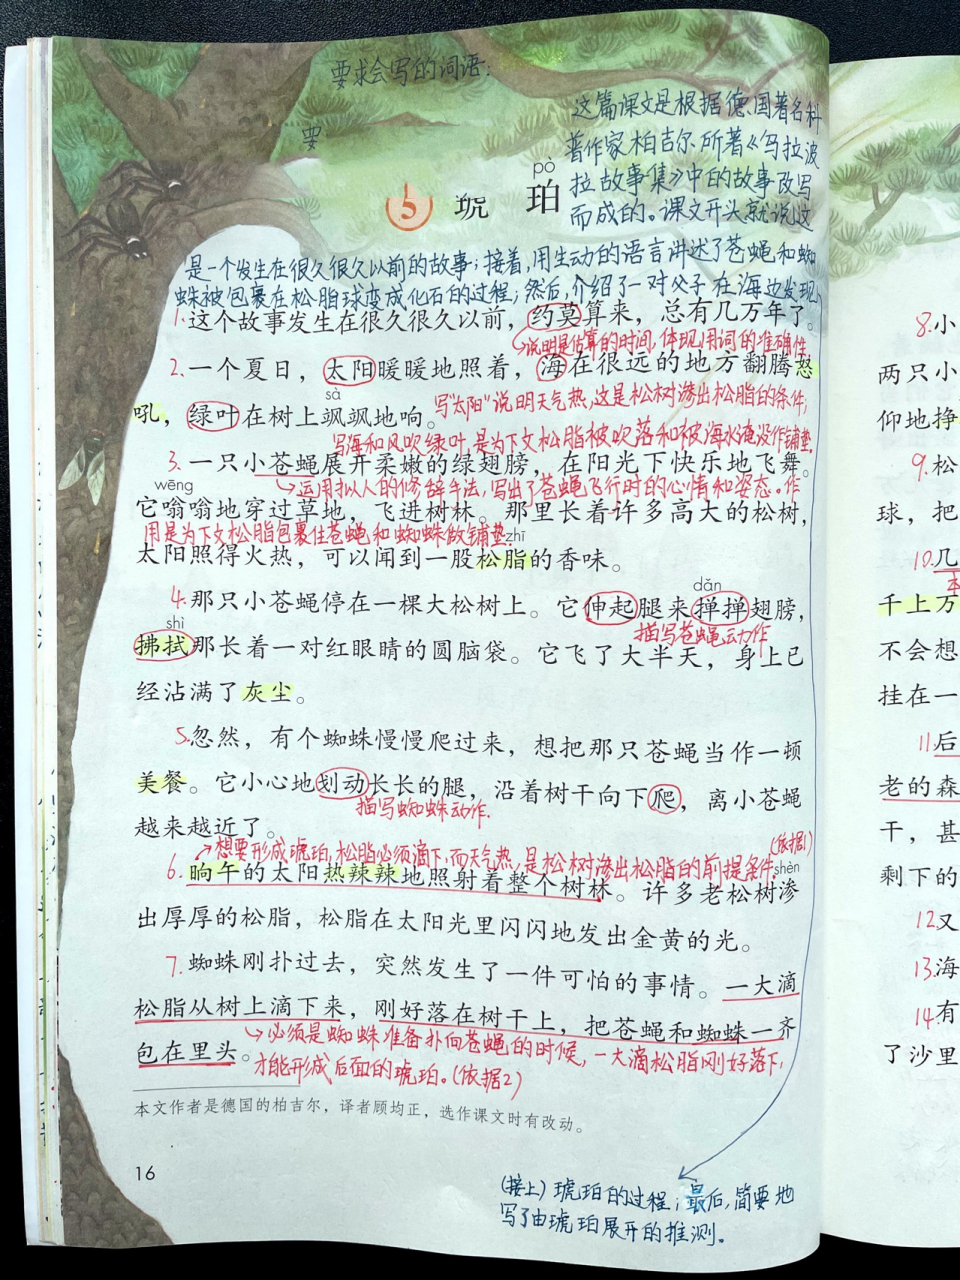 要求会写的词语:
要
这篇课文是根据德国著名科
普作家柏吉尔所著《乌拉波
拉故事集》中的故事改写
而成的。课文开头就说这
pò
5 琥 珀
是一个发生在很久很久以前的故事;接着,用生动的语言讲述了苍蝇和蜘
蛛被包裹在松脂球变成化石的过程;然后,介绍了一对父子在海边发现
1.这个故事发生在很久很久以前,约莫算来,总有几万年了。
说明是估算的时间,体现用词的准确性
2.一个夏日,太阳暖暖地照着,海在很远的地方翻腾怒
sà
吼,绿叶在树上飒飒地响。
写"太阳"说明天气热,这是松树渗出松脂的条件;
写海和风吹绿叶,是为下文松脂被吹落和被海水淹没作铺垫.
3.一只小苍蝇展开柔嫩的绿翅膀,在阳光下快乐地飞舞。
运用拟人的修辞手法,写出了苍蝇飞行时的心情和姿态。作
wēng
它嗡嗡地穿过草地,飞进树林。那里长着许多高大的松树,
用是为下文松脂包裹住苍蝇和蜘蛛做铺垫.
zhī
太阳照得火热,可以闻到一股松脂的香味。
4.那只小苍蝇停在一棵大松树上。它伸起腿来掸掸翅膀,
dǎn
描写苍蝇动作
shì
拂拭那长着一对红眼睛的圆脑袋。它飞了大半天,身上已
经沾满了灰尘。
5.忽然,有个蜘蛛慢慢爬过来,想把那只苍蝇当作一顿
美餐。它小心地划动长长的腿,沿着树干向下爬,离小苍蝇
描写蜘蛛动作.
越来越近了。
想要形成琥珀,松脂必须滴下,而天气热,是松树渗出松脂的前提条件.(依据1)
shèn
6.晌午的太阳热辣辣地照射着整个树林。许多老松树渗
出厚厚的松脂,松脂在太阳光里闪闪地发出金黄的光。
7.蜘蛛刚扑过去,突然发生了一件可怕的事情。一大滴
松脂从树上滴下来,刚好落在树干上,把苍蝇和蜘蛛一齐
包在里头。
必须是蜘蛛准备扑向苍蝇的时候,一大滴松脂刚好落下,
才能形成后面的琥珀。(依据2)
本文作者是德国的柏吉尔,译者顾均正,选作课文时有改动。
16
(接上)琥珀的过程;最后,简要地
写了由琥珀展开的推测。
8.小
两只小
仰地挣
9.松
球,把
10.几
千上万
不会想
挂在一
11后
老的森
干,甚
剩下的
12又
13海
14有
了沙里